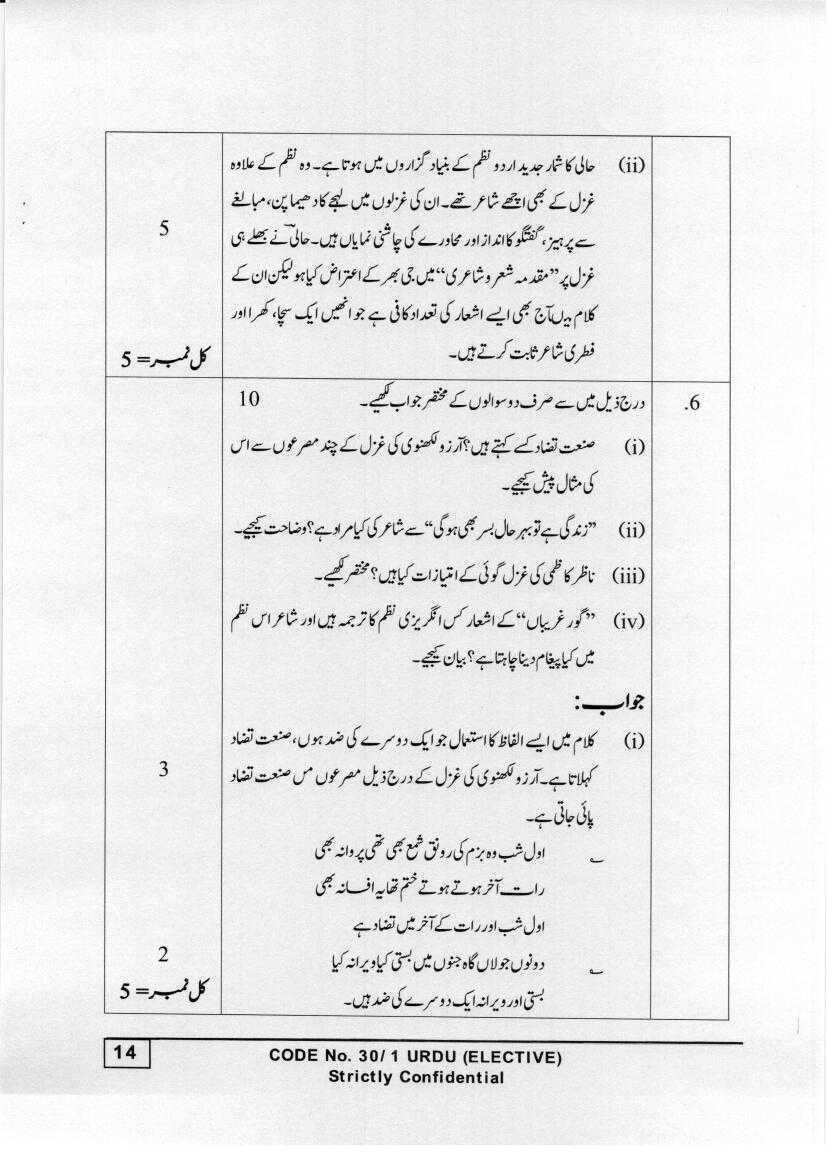 (ii) حالی کا شمار جدید اردو نظم کے بنیاد گزاروں میں ہوتا ہے۔ وہ نظم کے علاوہ
غزل کے بھی اچھے شاعر تھے۔ ان کی غزلوں میں لہجے کا دھیما پن، مبالغے
5
سے پرہیز، گفتگو کا انداز اور محاورے کی چاشنی نمایاں ہیں۔ حالیؔ نے بھلے ہی
غزل پر ”مقدمہ شعر و شاعری“ میں جی بھر کے اعتراض کیا ہو لیکن ان کے
کلام میں آج بھی ایسے اشعار کی تعداد کافی ہے جو انھیں ایک سچا، کھرا اور
فطری شاعر ثابت کرتے ہیں۔
کل نمبر = 5
6. درج ذیل میں سے صرف دو سوالوں کے مختصر جواب لکھیے۔ 10
(i) صنعت تضاد کسے کہتے ہیں؟ آرزو لکھنوی کی غزل کے چند مصرعوں سے اس
کی مثال پیش کیجیے۔
(ii) ”زندگی ہے تو بہر حال بسر بھی ہوگی“ سے شاعر کی کیا مراد ہے؟ وضاحت کیجیے۔
(iii) ناظر کاظمی کی غزل گوئی کے امتیازات کیا ہیں؟ مختصر لکھیے۔
(iv) ”گور غریباں“ کے اشعار کس انگریزی نظم کا ترجمہ ہیں اور شاعر اس نظم
میں کیا پیغام دینا چاہتا ہے؟ بیان کیجیے۔
جواب:
(i) کلام میں ایسے الفاظ کا استعمال جو ایک دوسرے کی ضد ہوں، صنعت تضاد
3
کہلاتا ہے۔ آرزو لکھنوی کی غزل کے درج ذیل مصرعوں مس صنعت تضاد
پائی جاتی ہے۔
؎ اول شب وہ بزم کی رونق شمع بھی تھی پروانہ بھی
رات آخر ہوتے ہوتے ختم تھا یہ افسانہ بھی
اول شب اور رات کے آخر میں تضاد ہے
2
؎ دونوں جولاں گاہ جنوں میں بستی کیا ویرانہ کیا
بستی اور ویرانہ ایک دوسرے کی ضد ہیں۔
کل نمبر = 5
14
CODE No. 30/1 URDU (ELECTIVE)
Strictly Confidential